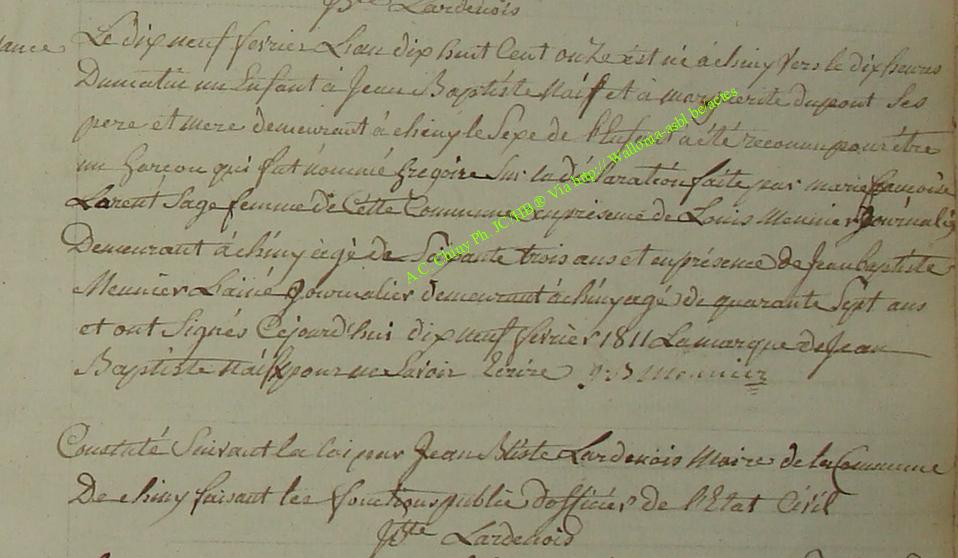 Bte Lardenois
Le dix neuf fevrier Lan dix huit Cent onze est né a chiny Vers le dix heures
Dumatin un Enfant à Jean Baptiste Naif et a marguerite dupont Ses
pere et mere demeurant à chiny le Sexe de l'Enfant à été reconnu pour être
un garçon qui fut nommé gregoire Sur la déclaration faite par marie françoise
Larent Sage femme de Cette Commune en présence de Louis Meunier Journalie
Demeurant à chiny égé de Soixante trois ans et en présence de Jean baptiste
Meunier L'ainé Journalier demeurant à chiny agé de quarante Sept ans
et ont Signés Cejourd'hui dix neuf fevrier 1811 La marque de Jean
Baptiste Naif pour ne Savoir Ecrire J:B Meunier
Constaté Suivant la loi par Jean Btiste Lardenois Maire de la Commune
De chiny faisant les fonctions public d'officier de l'Etat Civil
JBtte Lardenois
A.C. Chiny Ph. JC/HB® Via http// Wallonia-asbl.be/actes